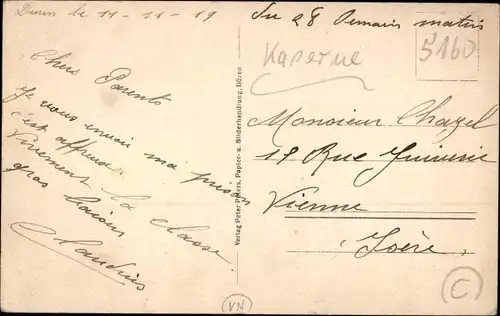 Duren le 11-11-19
Su 28 Demain matin
Kaserne
5160
Chers Parents
Je vous envoi ma prison
c'est affreux
Vivement la classe
gros baisers
Claudius
Verlag Peter Peters, Papier- u. Bilderhandlung, Düren
Monsieur Chazel
18 Rue Juiverie
Vienne
Isère
VN
C